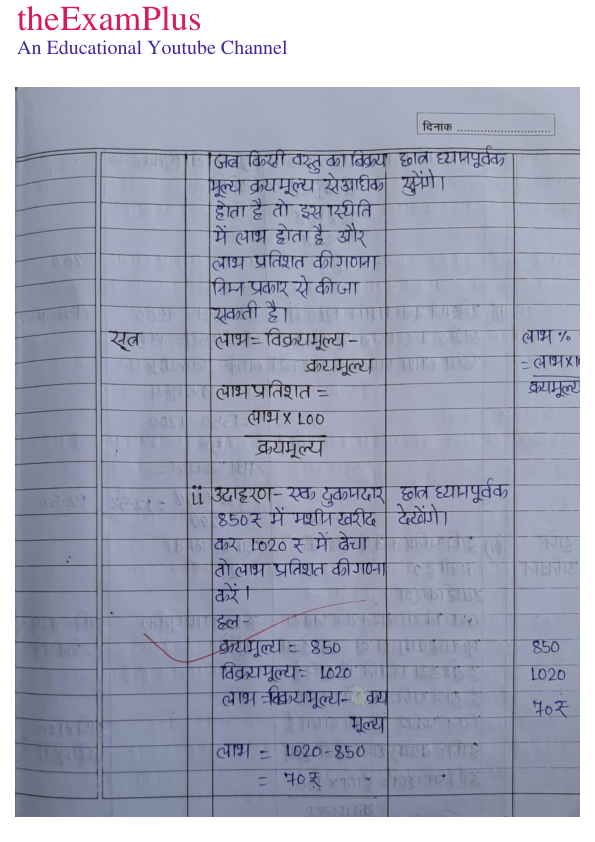 theExamPlus
An Educational Youtube Channel
दिनांक
जब किसी वस्तु का विक्रय
मूल्य क्रयमूल्य से अधिक
होता है तो इस स्थिति
में लाभ होता है और
लाभ प्रतिशत की गणना
निम्न प्रकार से की जा
सकती है।
छात्र ध्यानपूर्वक
सुनेंगे।
सूत्र
लाभ = विक्रयमूल्य -
क्रयमूल्य
लाभ प्रतिशत =
लाभ x 100
क्रयमूल्य
लाभ %
= लाभ x 10
क्रयमूल्य
ii उदाहरण - एक दुकानदार
850 ₹ में मशीन खरीद
कर 1020 ₹ में बेचा
तो लाभ प्रतिशत की गणना
करें।
छात्र ध्यानपूर्वक
देखेंगे।
हल -
क्रयमूल्य = 850
विक्रयमूल्य = 1020
लाभ = विक्रयमूल्य - क्रय
मूल्य
लाभ = 1020-850
= 70 ₹
850
1020
70 ₹